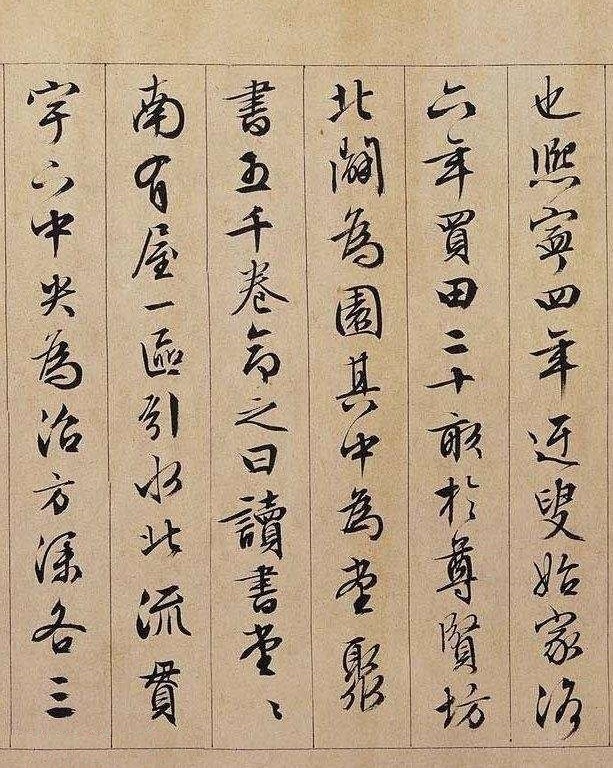 也熙寧四年迂叟始家洛
六年買田二十畝於尊賢坊
北闢為園其中為堂聚
書五千卷命之曰讀書堂〻
南有屋一區引水北流貫
宇下中央為沼方深各三